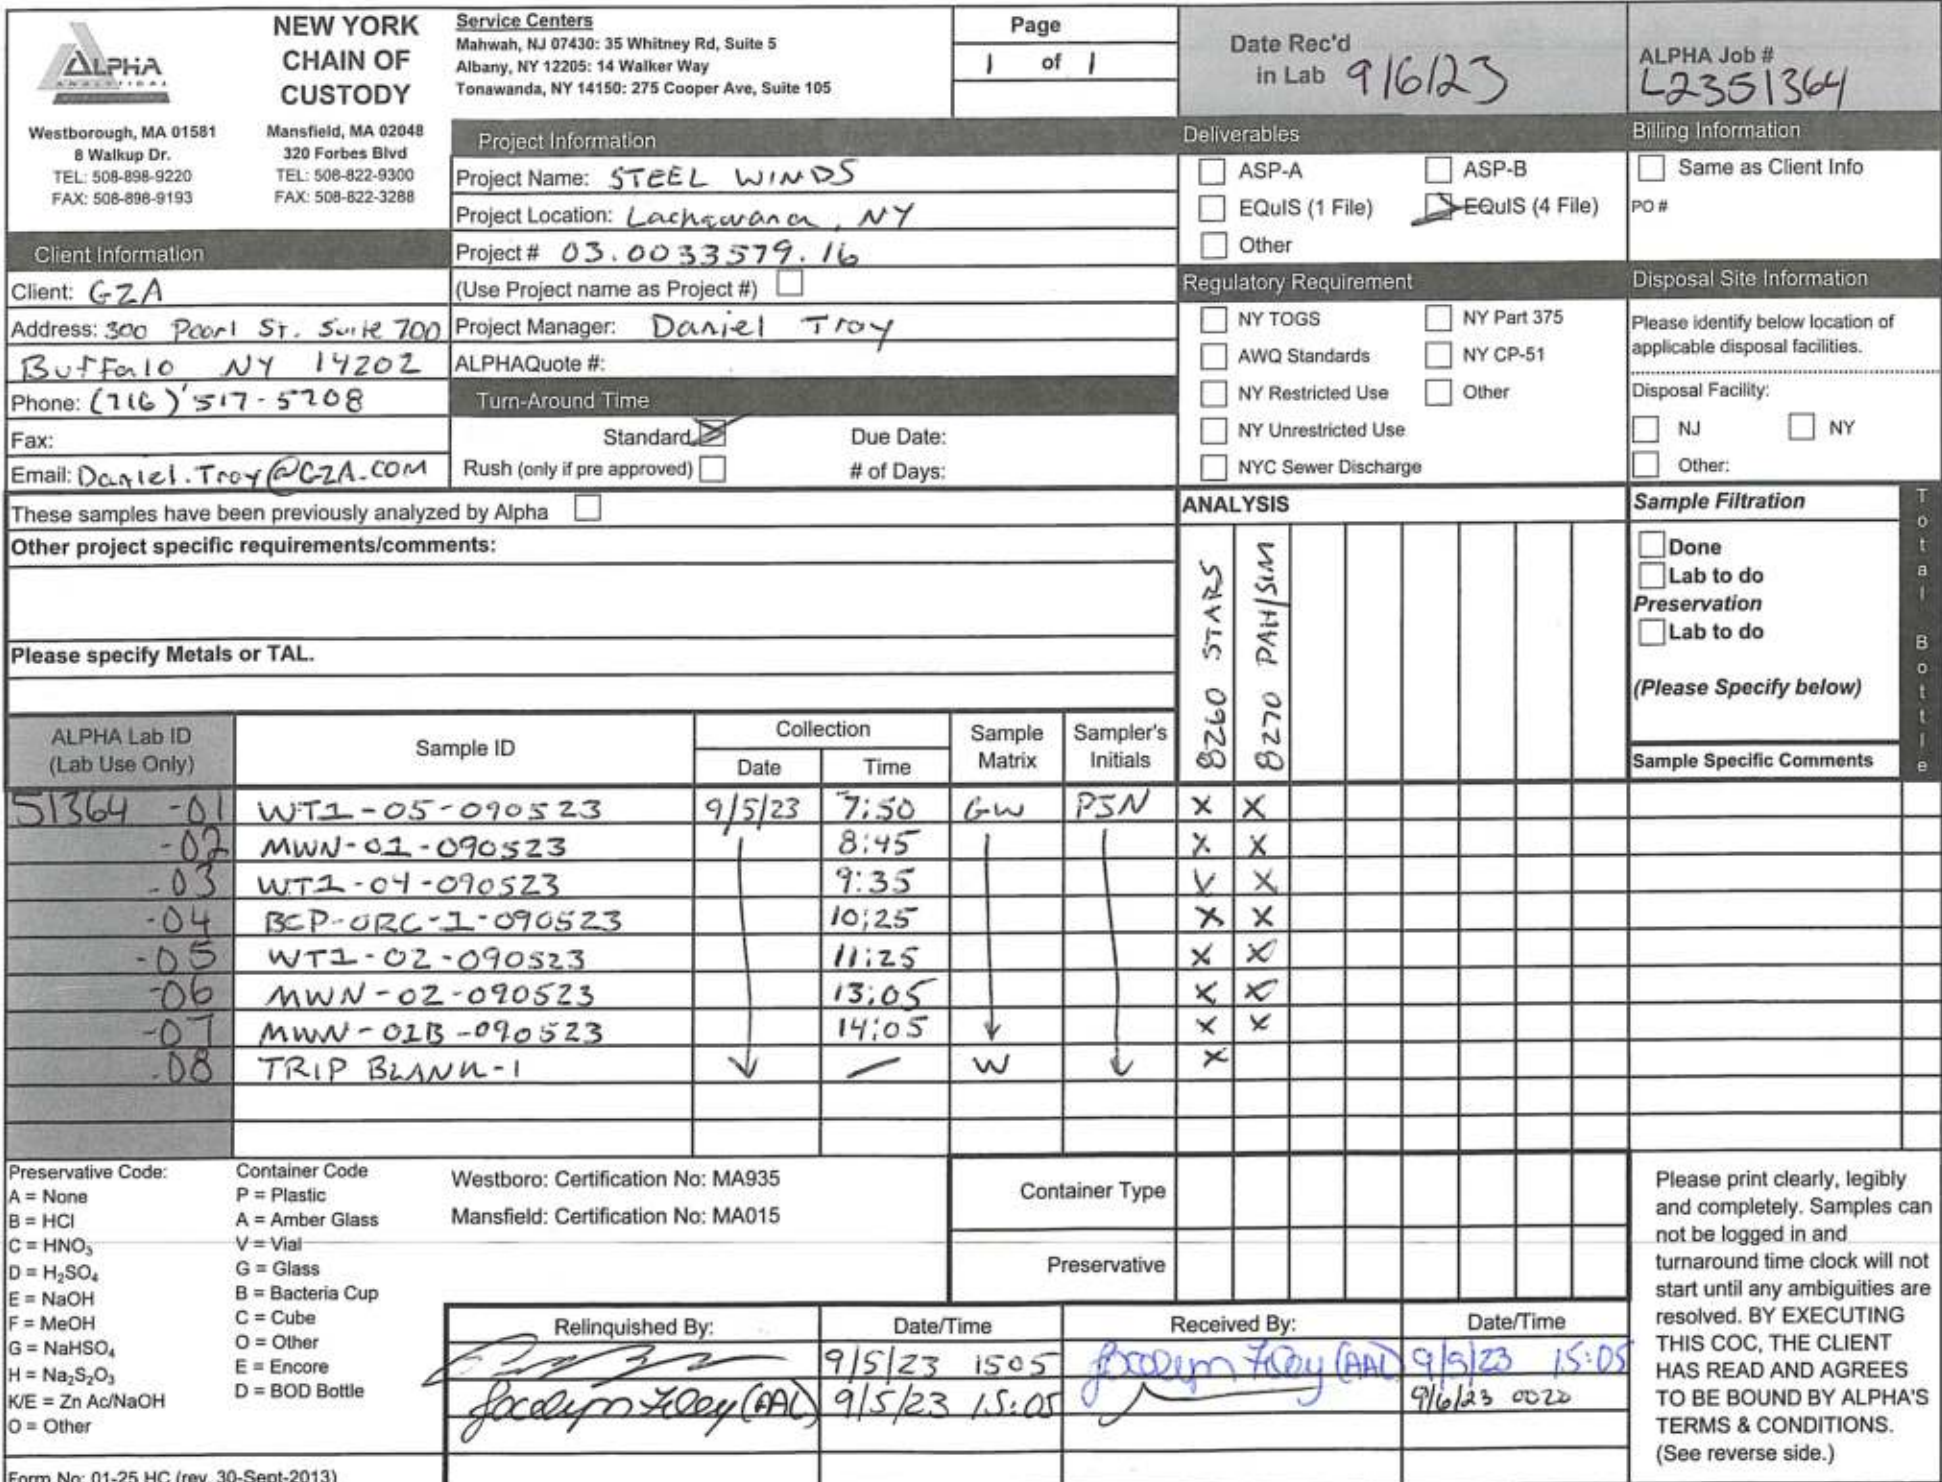 ALPHA
ANALYTICAL
Westborough, MA 01581
8 Walkup Dr.
TEL: 508-898-9220
FAX: 508-898-9193
NEW YORK
CHAIN OF
CUSTODY
Mansfield, MA 02048
320 Forbes Blvd
TEL: 508-822-9300
FAX: 508-822-3288
Service Centers
Mahwah, NJ 07430: 35 Whitney Rd, Suite 5
Albany, NY 12205: 14 Walker Way
Tonawanda, NY 14150: 275 Cooper Ave, Suite 105
Page
1 of 1
Date Rec'd
in Lab 9/6/23
ALPHA Job #
L2351364
Client Information
Client: GZA
Address: 300 Pearl St. Suite 700
Buffalo NY 14202
Phone: (716) 517-5208
Fax:
Email: Daniel.Troy@GZA.COM
Project Information
Project Name: STEEL WINDS
Project Location: Lackawana, NY
Project # 03.0033579.16
(Use Project name as Project #)
Project Manager: Daniel Troy
ALPHAQuote #:
Turn-Around Time
Standard Due Date:
Rush (only if pre approved) # of Days:
Deliverables
ASP-A ASP-B
EQuIS (1 File) EQuIS (4 File)
Other
Regulatory Requirement
NY TOGS NY Part 375
AWQ Standards NY CP-51
NY Restricted Use Other
NY Unrestricted Use
NYC Sewer Discharge
Billing Information
Same as Client Info
PO #
Disposal Site Information
Please identify below location of
applicable disposal facilities.
Disposal Facility:
NJ NY
Other:
These samples have been previously analyzed by Alpha
Other project specific requirements/comments:
Please specify Metals or TAL.
ANALYSIS
8260 STARS
8270 PAH/SIM
Sample Filtration
Done
Lab to do
Preservation
Lab to do
(Please Specify below)
Sample Specific Comments
Total Bottle
ALPHA Lab ID
(Lab Use Only)
Sample ID
Collection
Date Time
Sample
Matrix
Sampler's
Initials
51364 -01 WT1-05-090523 9/5/23 7:50 GW PJN X X
-02 MWN-01-090523 8:45 X X
-03 WT1-04-090523 9:35 X X
-04 BCP-ORC-1-090523 10:25 X X
-05 WT1-02-090523 11:25 X X
-06 MWN-02-090523 13:05 X X
-07 MWN-02B-090523 14:05 X X
-08 TRIP BLANK-1 — W X
Preservative Code:
A = None
B = HCl
C = HNO3
D = H2SO4
E = NaOH
F = MeOH
G = NaHSO4
H = Na2S2O3
K/E = Zn Ac/NaOH
O = Other
Container Code
P = Plastic
A = Amber Glass
V = Vial
G = Glass
B = Bacteria Cup
C = Cube
O = Other
E = Encore
D = BOD Bottle
Westboro: Certification No: MA935
Mansfield: Certification No: MA015
Container Type
Preservative
Relinquished By: Date/Time Received By: Date/Time
9/5/23 1505 Jocelyn Foley (AAL) 9/5/23 15:05
Jocelyn Foley (AAL) 9/5/23 15:05 9/6/23 0020
Please print clearly, legibly
and completely. Samples can
not be logged in and
turnaround time clock will not
start until any ambiguities are
resolved. BY EXECUTING
THIS COC, THE CLIENT
HAS READ AND AGREES
TO BE BOUND BY ALPHA'S
TERMS & CONDITIONS.
(See reverse side.)
Form No: 01-25 HC (rev. 30-Sept-2013)